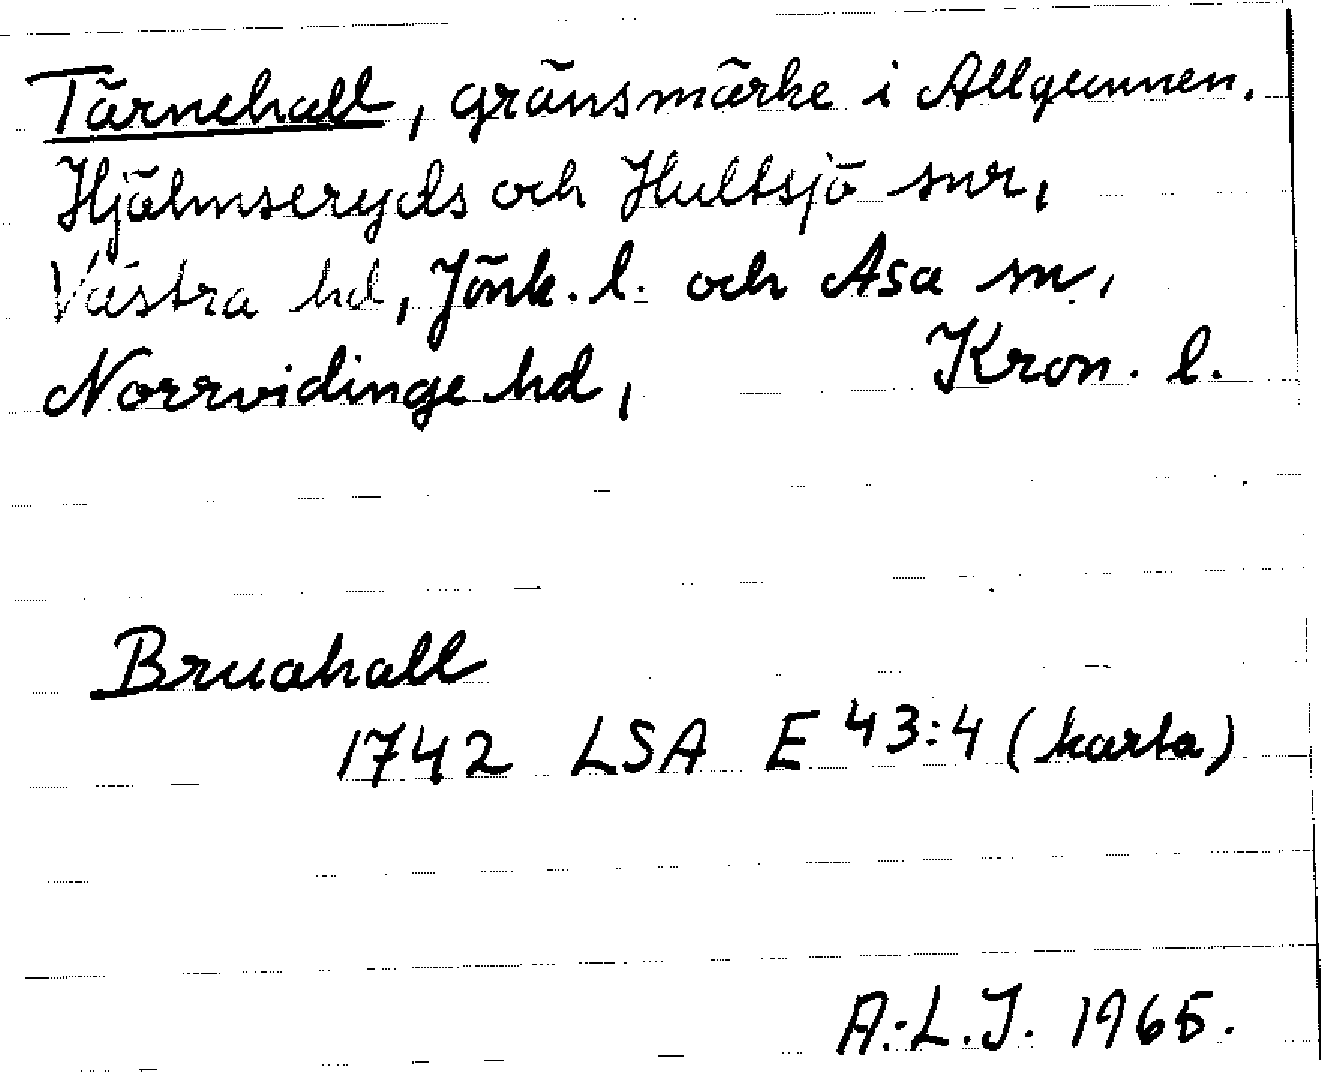 Tärnehall, gränsmärke i Allgunnen.
Hjälmseryds och Hultsjö snr,
Västra hd, Jönk. l. och Asa sn,
Norrvidinge hd, Kron. l.
Bruahall
1742 LSA E 43:4 (karta)
A.-L.J. 1965.